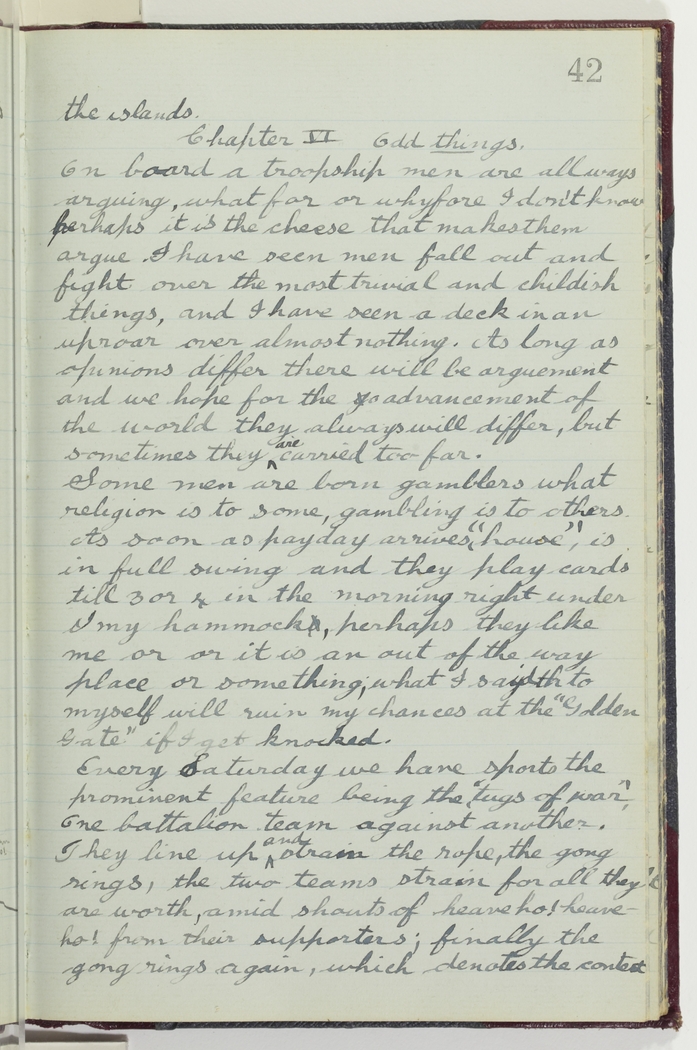 42
the islands.
Chapter VI Odd things.
On board a troopship men are allways
arguing, what for or whyfore I don't know
perhaps it is the cheese that makes them
argue. I have seen men fall out and
fight over the most trivial and childish
things, and I have seen a deck in an
uproar over almost nothing. As long as
opinions differ there will be arguement
and we hope for the advancement of
the world they always will differ, but
sometimes they are carried too far.
Some men are born gamblers what
religion is to some, gambling is to others.
As soon as payday arrives, "house", is
in full swing and they play cards
till 3 or 4 in the morning right under
my hammock, perhaps they like
me or or it is an out of the way
place or something; what I sayeth to
myself will ruin my chances at the "Golden
Gate" if I get knocked.
Every Saturday we have sports the
prominent feature being the "tugs of war",
One battalion team against another.
They line up and strain the rope, the gong
rings, the two teams strain for all they
are worth, amid shouts of heave ho! heave-
ho! from their supporters; finally the
gong rings again, which denotes the contest